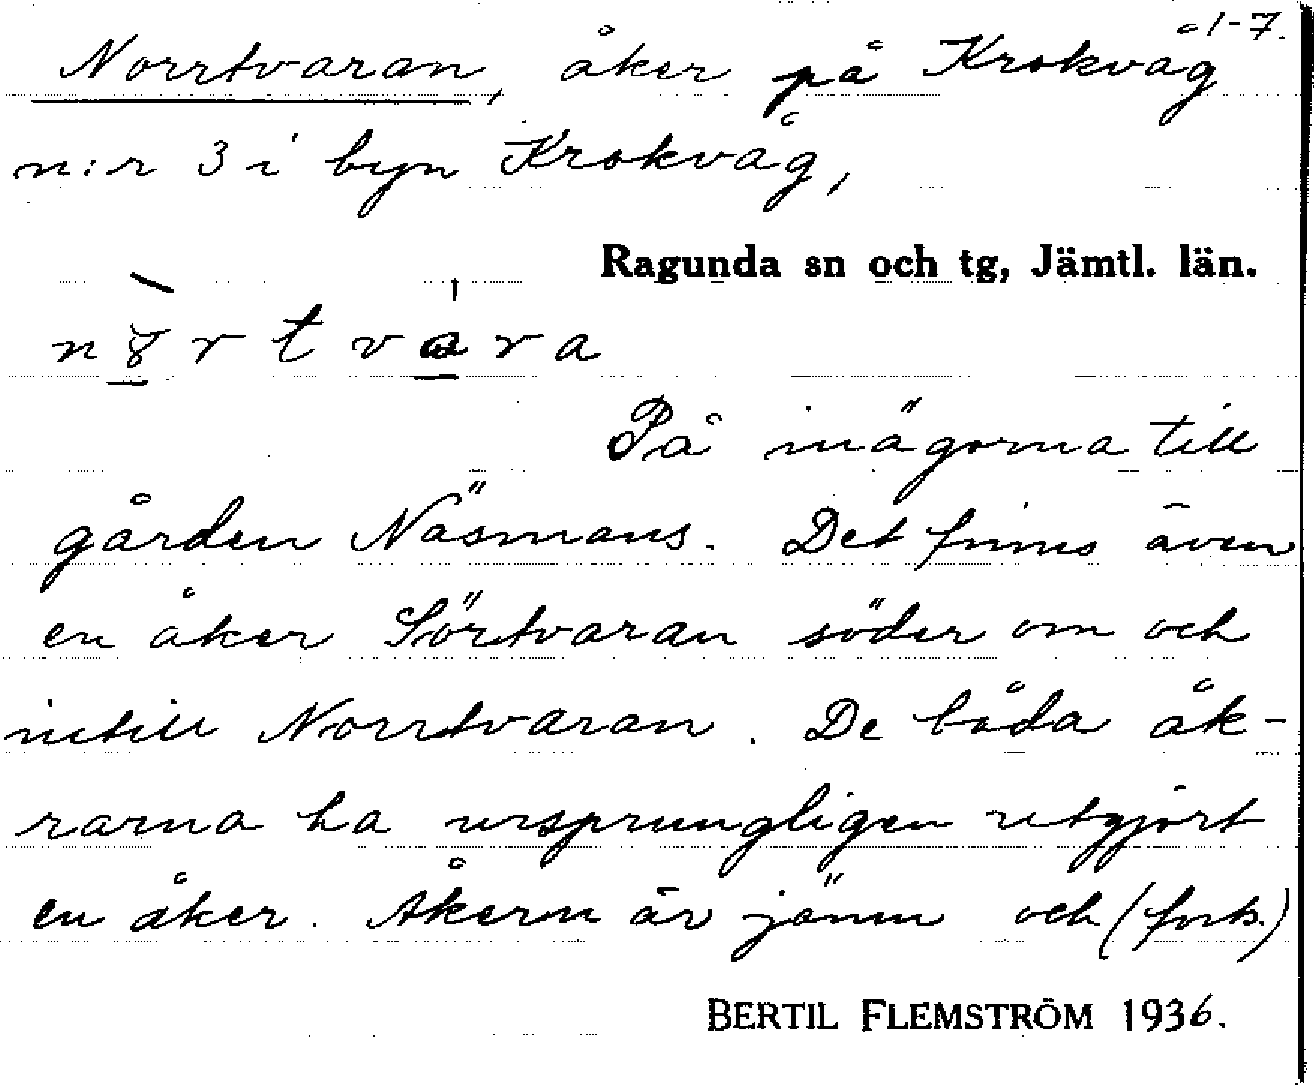 1-7.
Norrtvaran, åker på Krokvåg
n:r 3 i byn Krokvåg,
Ragunda sn och tg, Jämtl. län.
På inägorna till
gården Näsmans. Det finns även
en åker Sörtvaran söder om och
intill Norrtvaran. De båda åk-
rarna ha ursprungligen utgjort
en åker. Åkern är jämn och (forts.)
BERTIL FLEMSTRÖM 1936.